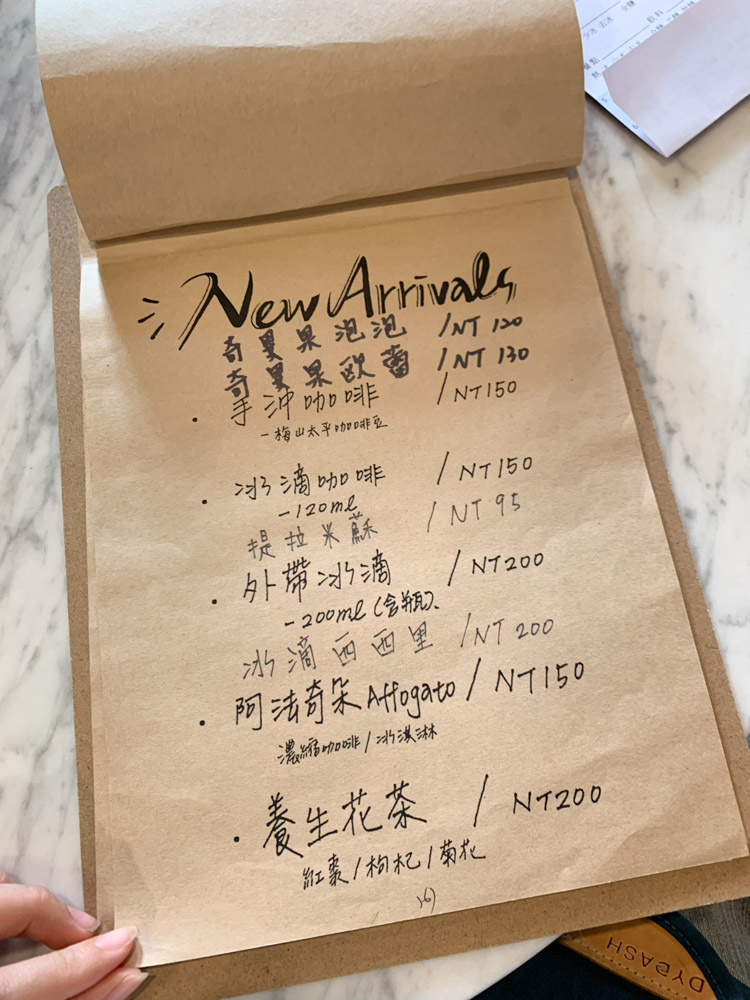 New Arrivals
奇異果泡泡 /NT 120
奇異果歐蕾 /NT 130
· 手沖咖啡 /NT150
-梅山太平咖啡豆
· 冰滴咖啡 /NT150
-120ml
提拉米蘇 /NT 95
· 外帶冰滴 /NT200
-200ml(含瓶)
冰滴西西里 /NT 200
· 阿法奇朵Affogato/NT150
濃縮咖啡/冰淇淋
· 養生花茶 / NT200
紅棗/枸杞/菊花
飲料